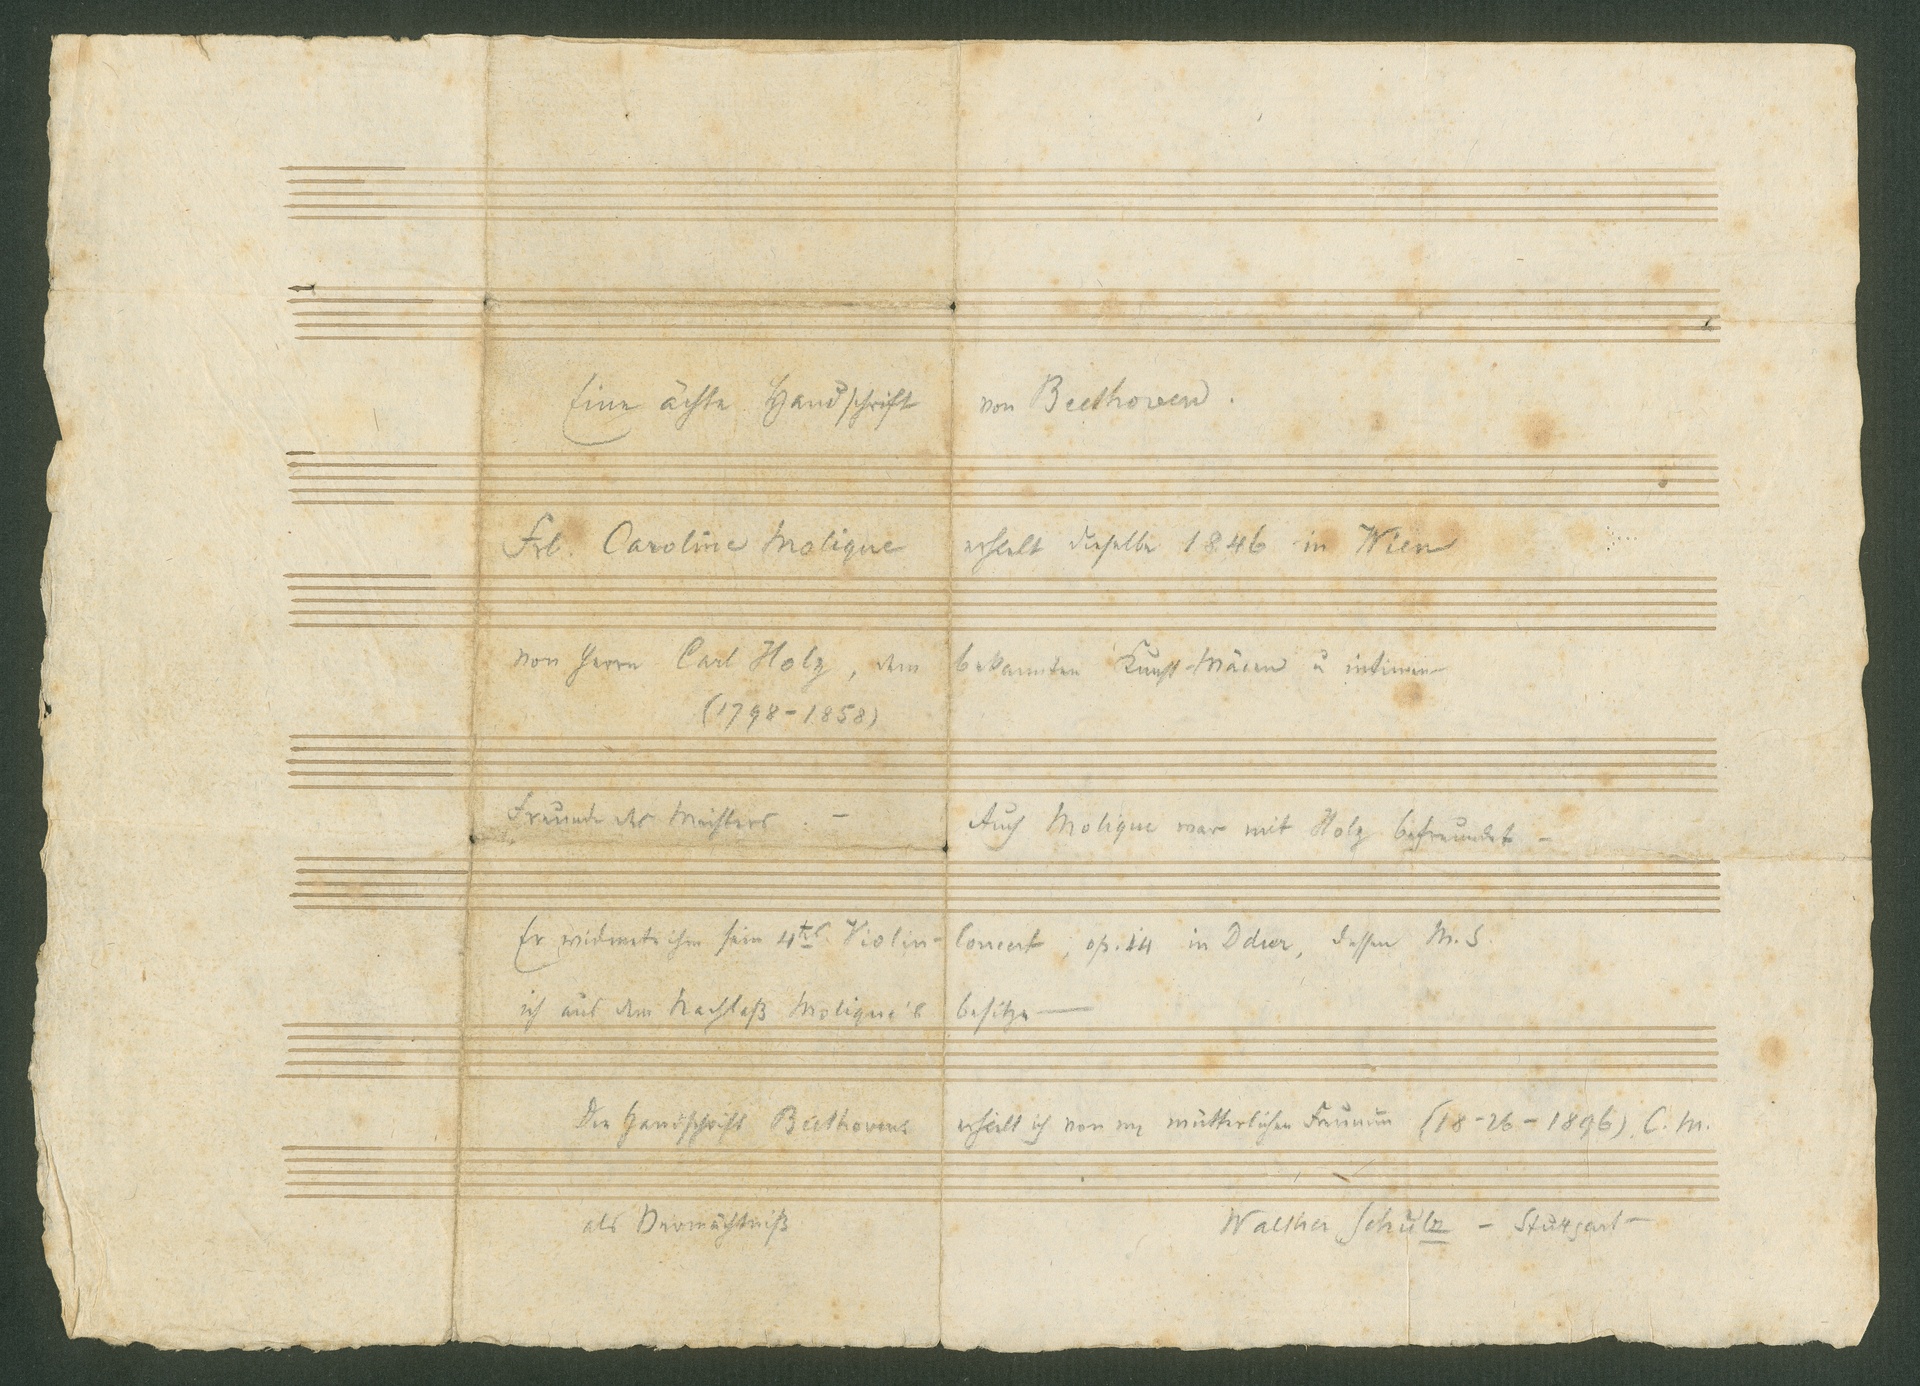 Eine ächte Handschrift von Beethoven.
Frl. Caroline Molique erhielt dieselbe 1846 in Wien
von Herrn Carl Holz, dem bekannten Kunst-Mäcen u intimen
(1798-1858)
Freunde des Meisters. - Auch Molique war mit Holz befreundet -
Er widmete ihm sein 4tes Violin-Concert, op. 14 in Ddur, dessen M.S.
ich aus dem Nachlaß Molique's besitze —
Die Handschrift Beethovens erhielt ich von mr mütterlichen Freundin (18-26-1896) C. M.
als Vermächtniß Walther Schulz - Stuttgart -